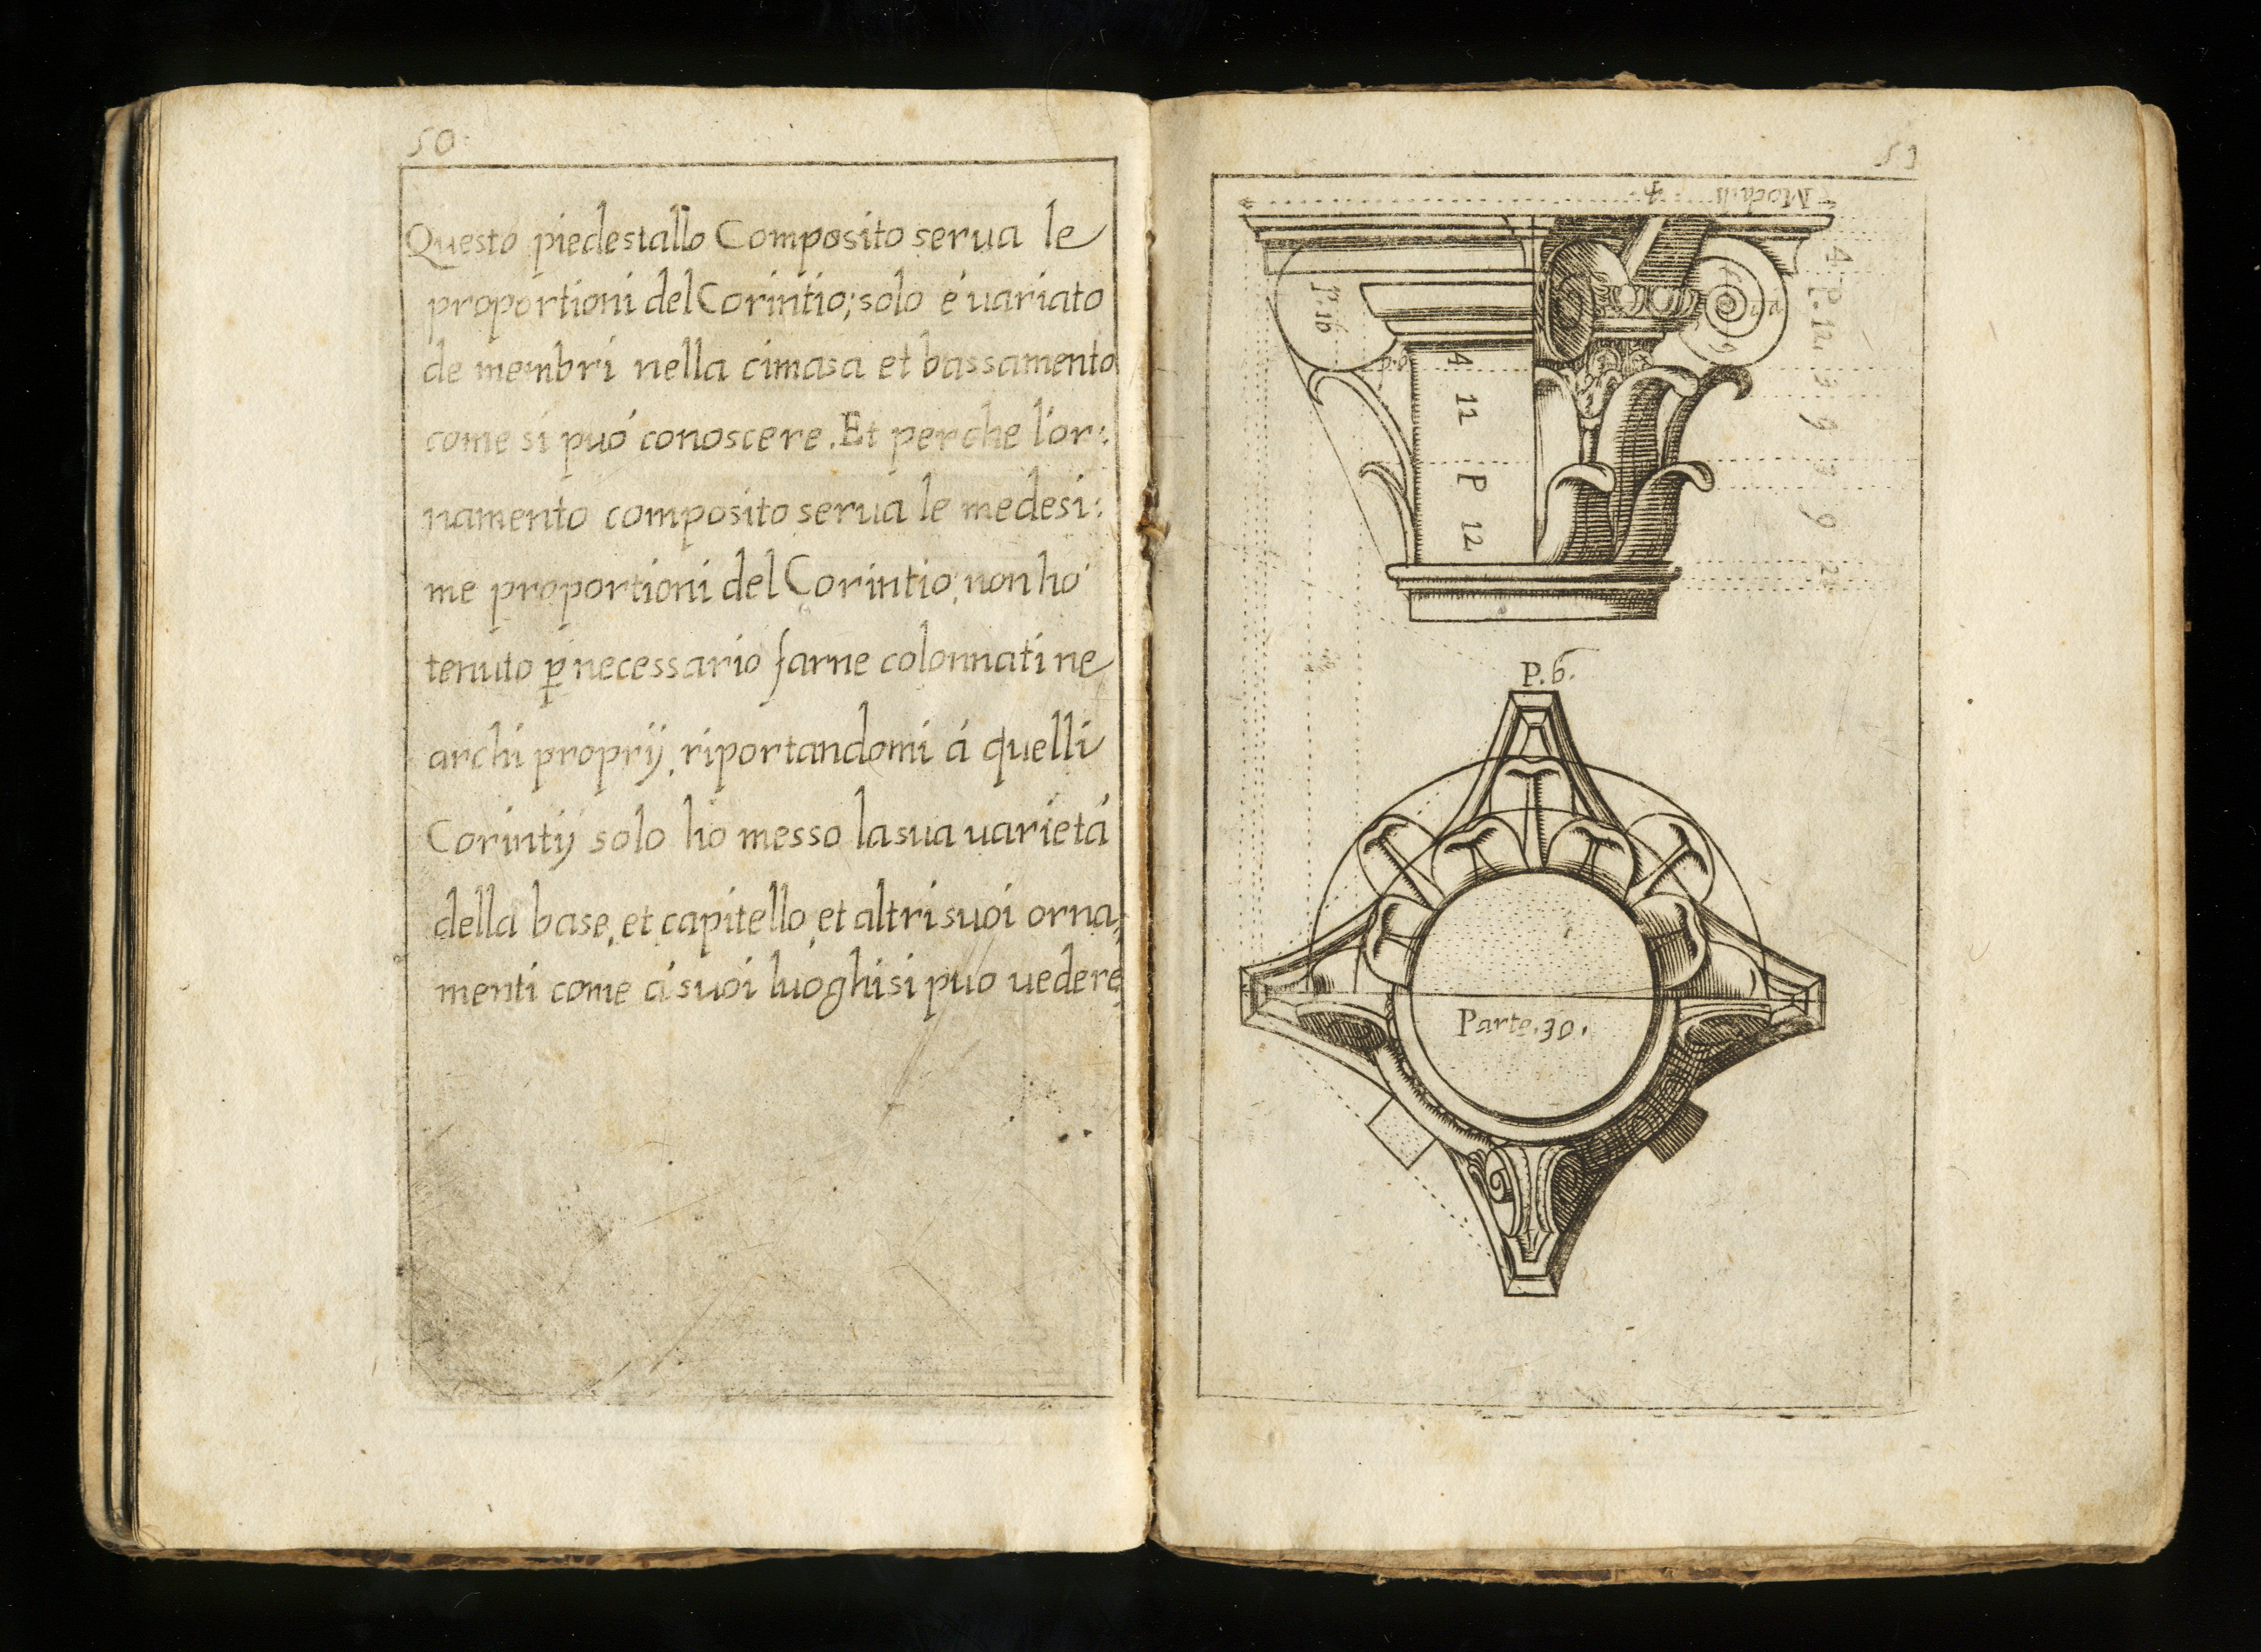 50
Questo piedestallo Composito serua le
proportioni del Corintio; solo é uariato
de membri nella cimasa et bassamento
come si puó conoscere. Et perche l'or:
namento composito serua le medesi:
me proportioni del Corintio, non ho
tenuto p necessario farne colonnati ne
archi proprij, riportandomi á quelli
Corintij solo ho messo la sua uarietá
della base, et capitello, et altri suoi orna,
menti come á suoi luoghi si puo uedere
51
Moduli 4
4
P. 12
3
9
3
9
2
P. 16
4
11
P
12
P. 6.
Parte. 30.